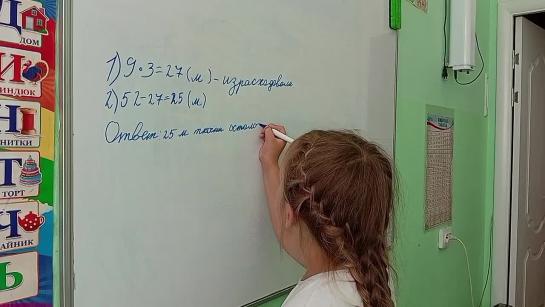 1) 9·3=27 (м) – израсходовали
2) 52-27=25 (м)
Ответ: 25 м ткани остало
Д
ДОМ
И
ИНДЮК
Н
НИТКИ
Т
ТОРТ
Ч
ЧАЙНИК
Ь